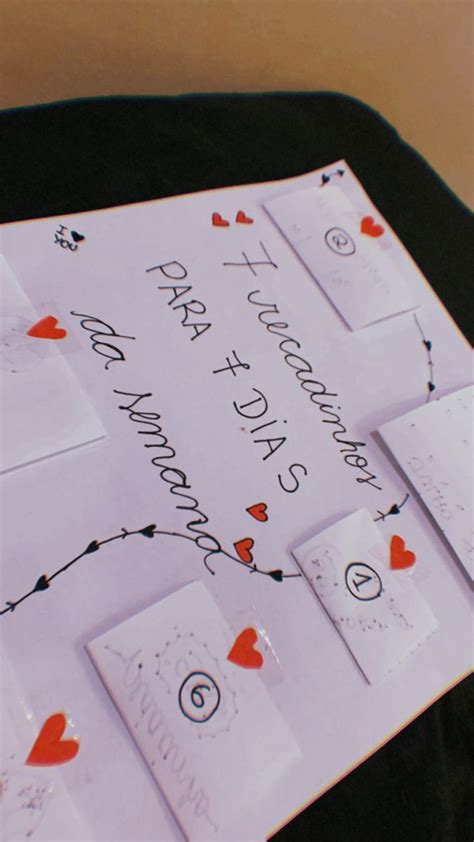 7 recadinhos
PARA 7 DÍAS
da semana
2
1
6